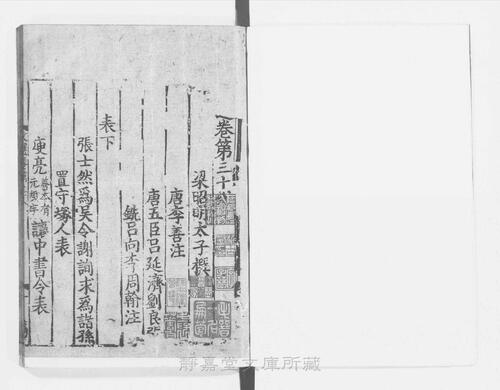 卷第三十八
梁昭明太子撰
唐李善注
唐五臣呂延濟劉良張
銑呂向李周翰注
表下
張士然爲吳令謝詢求爲諸孫
置守塚人表
庾亮善本有元規字讓中書令表
靜嘉堂文庫所藏